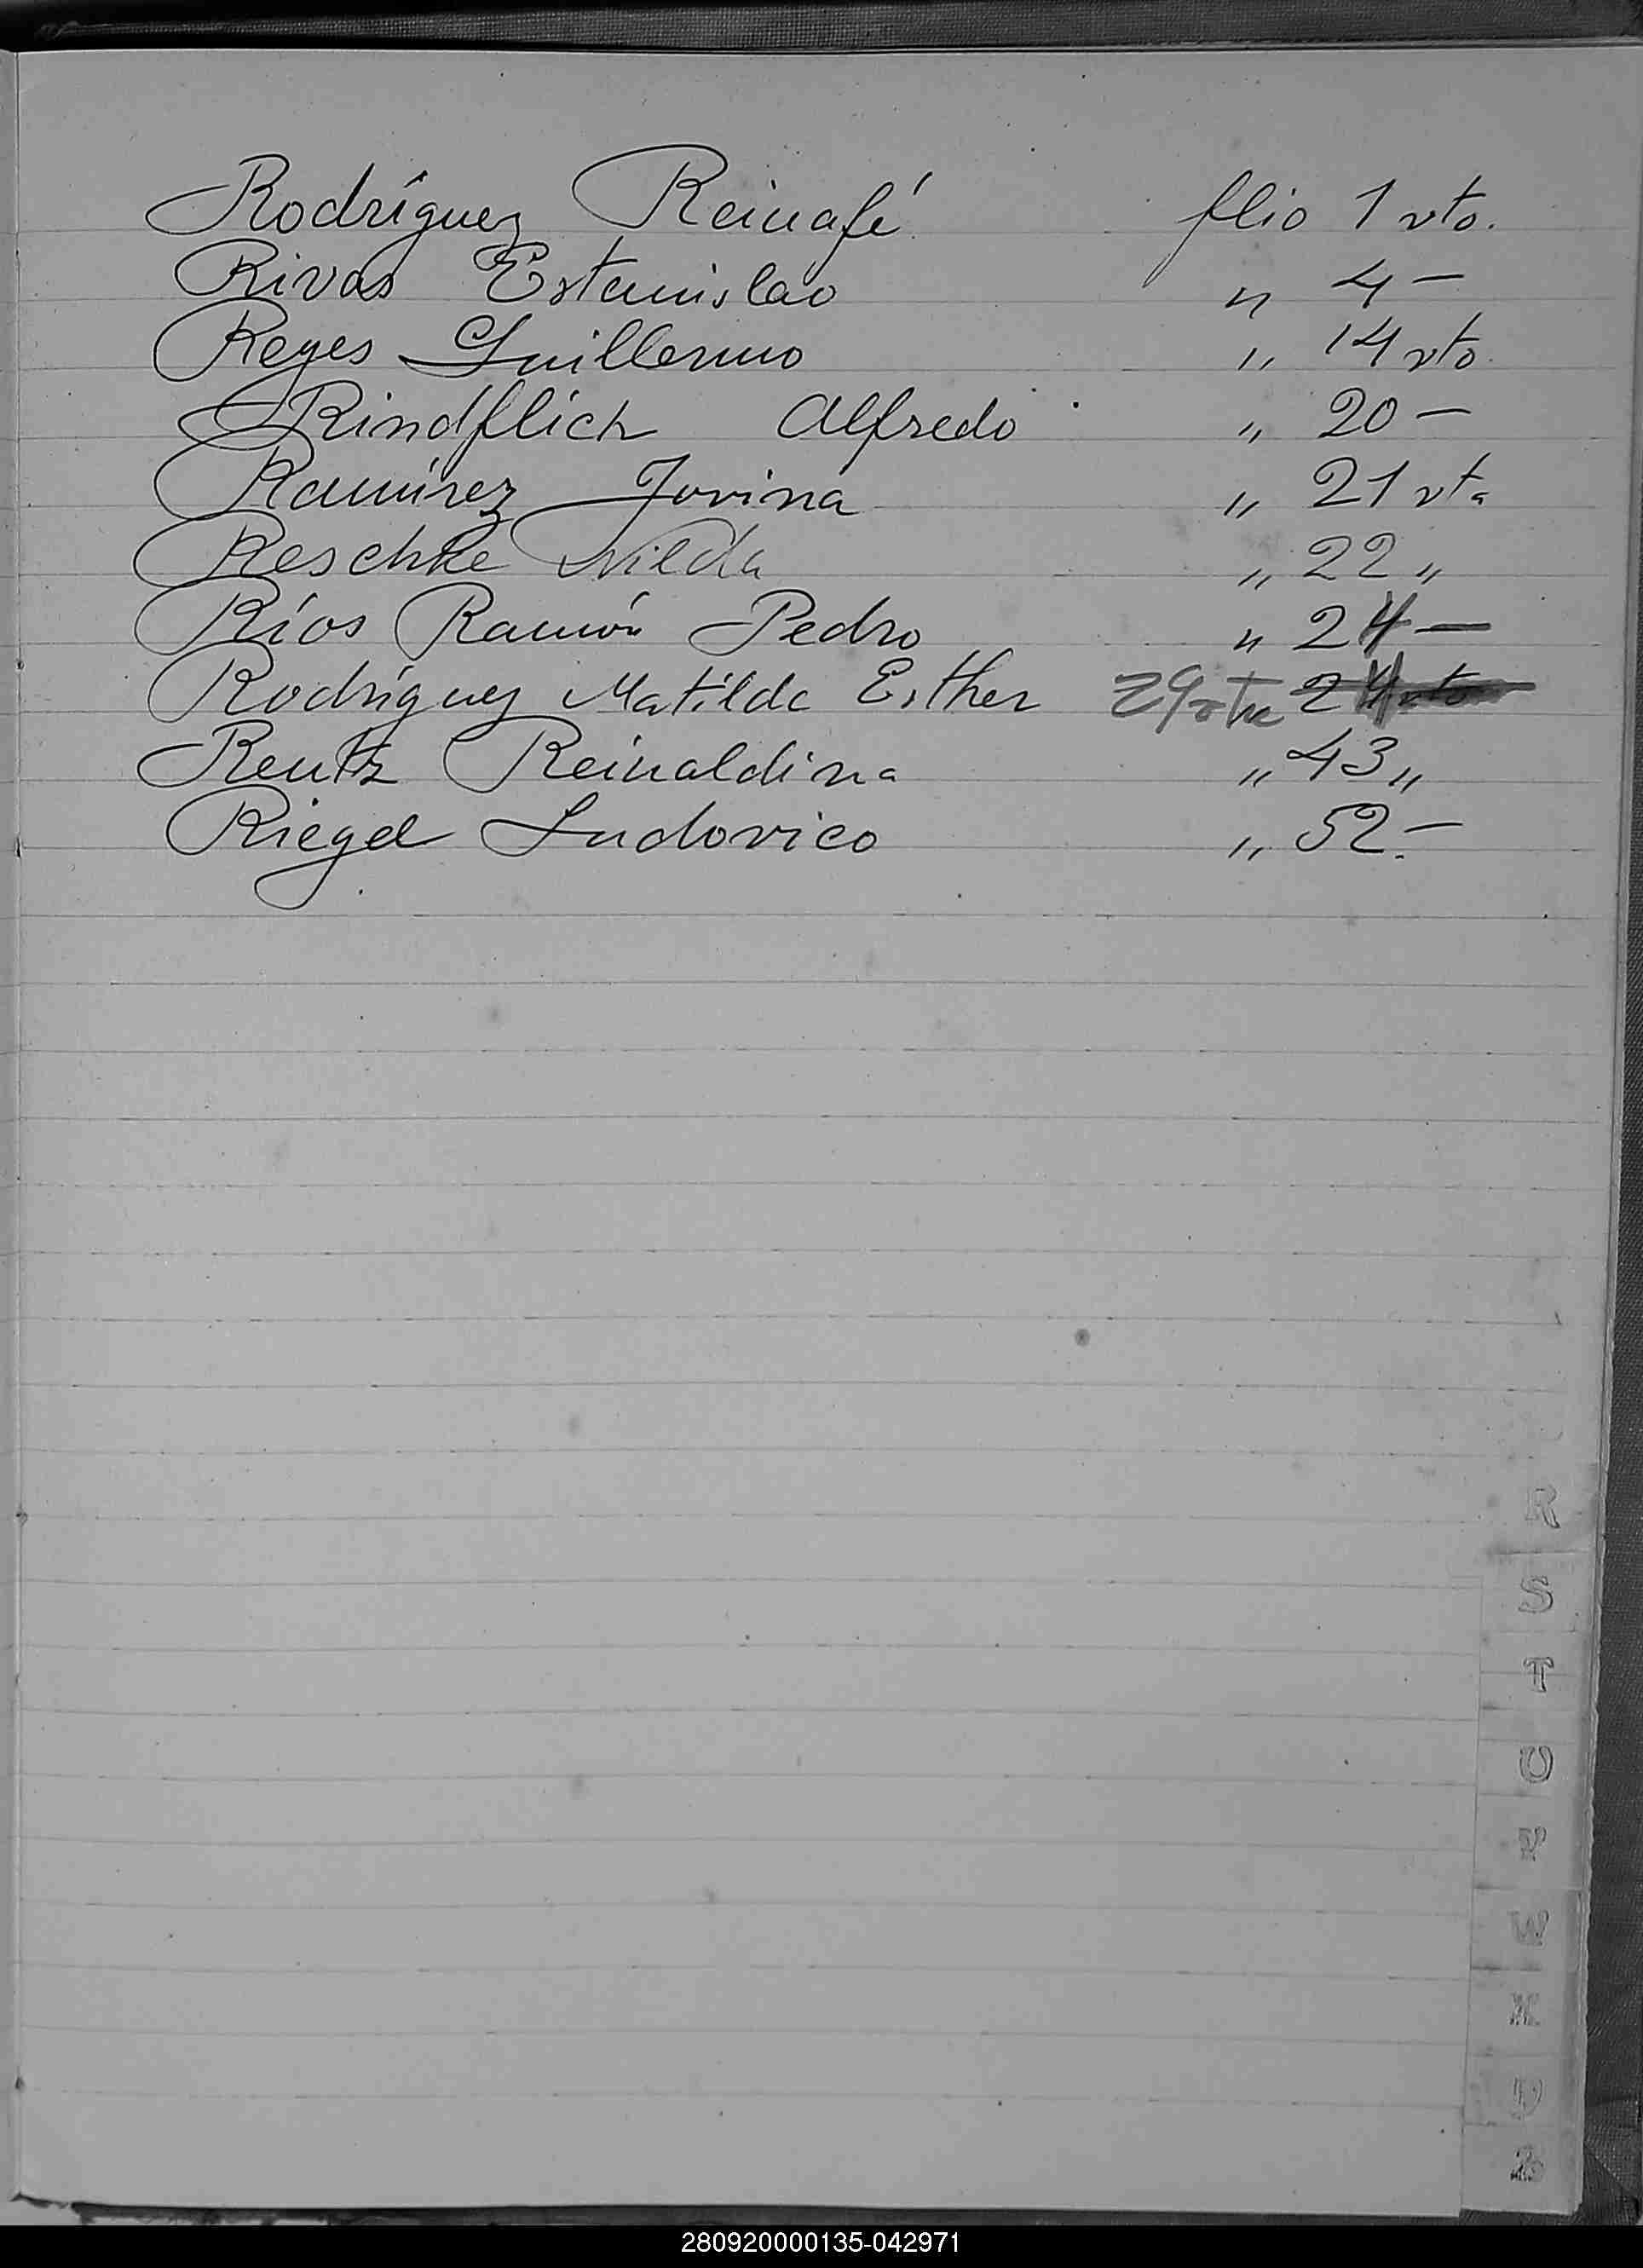 Rodríguez Reinafé flio 1 vto.
Rivas Estanislao " 4 —
Reyes Guillermo " 14 vto.
Rindflich Alfredo " 20 —
Ramírez Jovina " 21 vta
Reschke Nilda " 22 "
Ríos Ramón Pedro " 24 —
Rodríguez Matilde Esther 29 vta 24 vto
Reutz Reinaldina " 43 "
Riegel Ludovico " 52. —
R
S
T
U
V
W
X
Y
Z
280920000135-042971